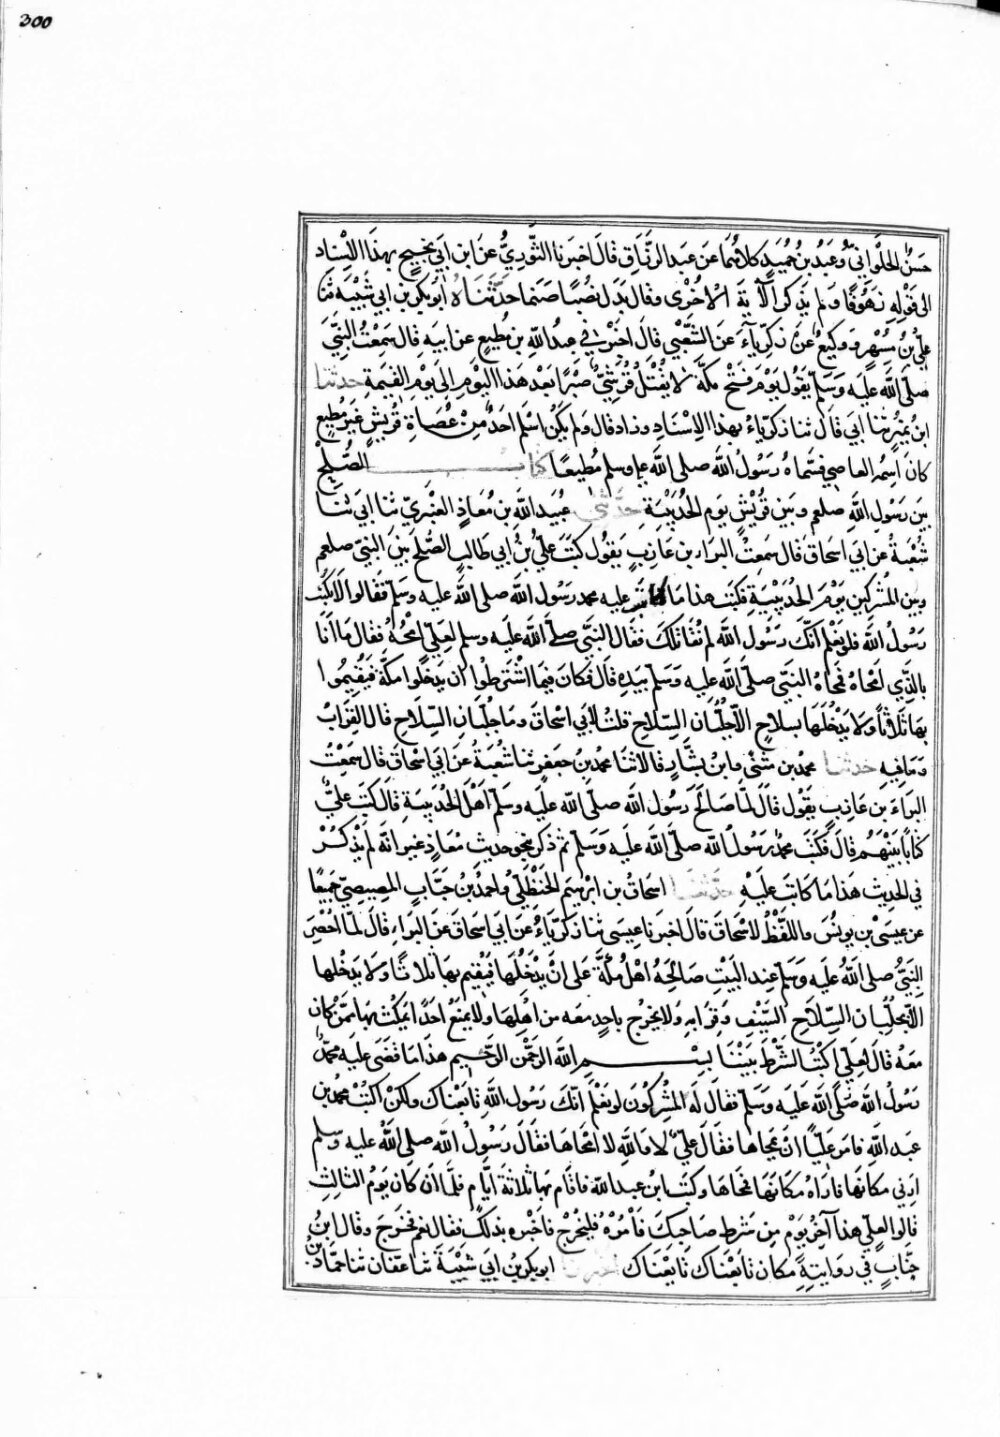 300
حسن الحلواني وعبد بن حميد كلاهما عن عبد الرزاق قال اخبرنا الثوري عن ابن ابي نجيح بهذا الاسناد
الى قوله زهوقا ولم يذكر الآية الاخرى وقال بدل نصبا صنما حدثناه ابوبكر بن ابي شيبة ثنا
علي بن مسهر ووكيع عن زكرياء عن الشعبي قال اخبرني عبد الله بن مطيع عن ابيه قال سمعت النبي
صلى الله عليه وسلم يقول يوم فتح مكة لا يقتل قرشي صبرا بعد هذا اليوم الى يوم القيمة حدثنا
ابن نمير ثنا ابي قال ثنا زكرياء بهذا الاسناد وزاد قال ولم يكن اسلم احد من عصاة قريش غير مطيع
كان اسمه العاصي فسماه رسول الله صلى الله عليه وسلم مطيعا كتاب الصلح
بين رسول الله صلعم وبين قريش يوم الحديبية حدثني عبيد الله بن معاذ العنبري ثنا ابي ثنا
شعبة عن ابي اسحاق قال سمعت البراء بن عازب يقول كتب علي بن ابي طالب الصلح بين النبي صلعم
وبين المشركين يوم الحديبية فكتب هذا ما كاتب عليه محمد رسول الله صلى الله عليه وسلم فقالوا لا تكتب
رسول الله فلو نعلم انك رسول الله لم نقاتلك فقال النبي صلى الله عليه وسلم لعلي امحه فقال ما انا
بالذي امحاه فمحاه النبي صلى الله عليه وسلم بيده قال فكان فيما اشترطوا ان يدخلوا مكة فيقيموا
بها ثلاثا ولا يدخلها بسلاح الا جلبان السلاح قلت لابي اسحاق وما جلبان السلاح قال القراب
وما فيه حدثنا محمد بن مثنى وابن بشار قالا ثنا محمد بن جعفر ثنا شعبة عن ابي اسحاق قال سمعت
البراء بن عازب يقول قال لما صالح رسول الله صلى الله عليه وسلم اهل الحديبية قال كتب علي
كتابا بينهم قال فكتب محمد رسول الله صلى الله عليه وسلم ثم ذكر بنحو حديث معاذ غير انه لم يذكر
في الحديث هذا ما كاتب عليه حدثنا اسحاق بن ابرهيم الحنظلي واحمد بن جناب المصيصي جميعا
عن عيسى بن يونس واللفظ لاسحاق قال اخبرنا عيسى ثنا زكرياء عن ابي اسحاق عن البراء قال لما احضر
النبي صلى الله عليه وسلم عند البيت صالحه اهل مكة على ان يدخلها فيقيم بها ثلاثا ولا يدخلها
الا بجلبان السلاح السيف وقرابه ولا يخرج باحد معه من اهلها ولا يمنع احدا يمكث بها ممن كان
معه قال لعلي اكتب الشرط بيننا بسم الله الرحمن الرحيم هذا ما قضى عليه محمد
رسول الله صلى الله عليه وسلم فقال له المشركون لو نعلم انك رسول الله تابعناك ولكن اكتب محمد بن
عبد الله فامر عليا ان يمحاها فقال علي لا والله لا امحاها فقال رسول الله صلى الله عليه وسلم
ارني مكانها فاراه مكانها فمحاها وكتب ابن عبد الله فاقام بها ثلاثة ايام فلما ان كان يوم الثالث
قالوا لعلي هذا آخر يوم من شرط صاحبك فأمره فليخرج فاخبره بذلك فقال نعم فخرج وقال ابن
جناب في روايته مكان تابعناك تابعناك ابوبكر بن ابي شيبة ثنا عفان ثنا حماد بن